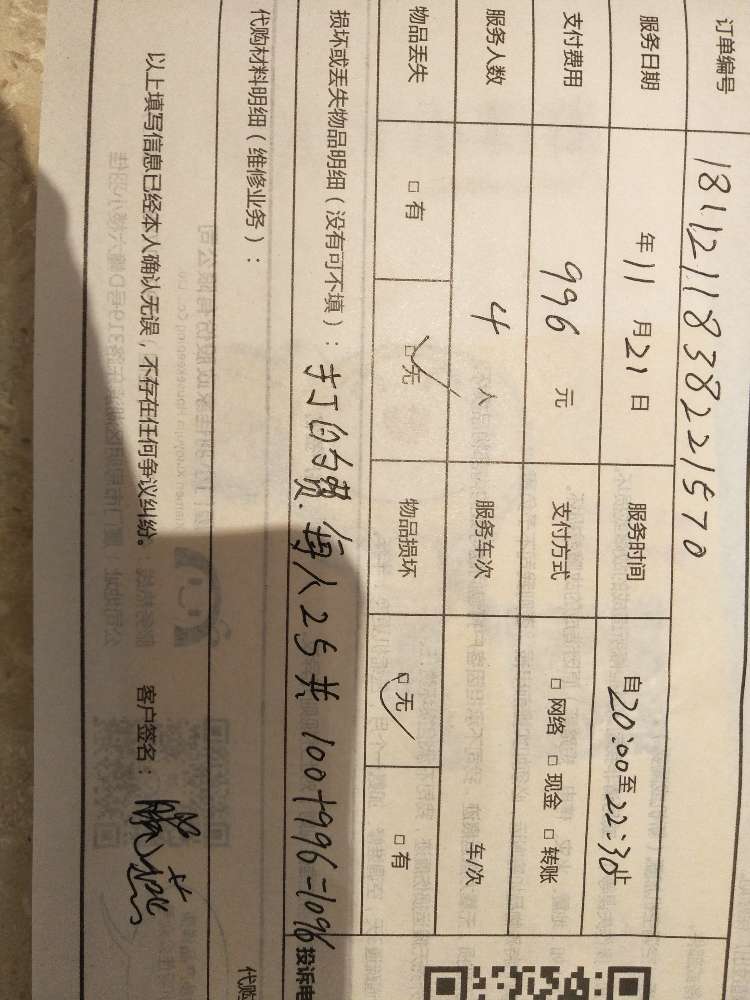 订单编号 181121183822​1570
服务日期 年11月21日 服务时间 自20:00至22:30止
支付费用 996元 支付方式 □ 网络 □ 现金 □ 转账
服务人数 4人 服务车次 车/次
物品丢失 □ 有 □ 无 物品损坏 □ 无 □ 有
损坏或丢失物品明细（没有可不填）：打的费.每人25共100+996=1096
代购材料明细（维修业务）：
以上填写信息已经本人确认无误，不存在任何争议纠纷。 客户签名：
投诉电
代购